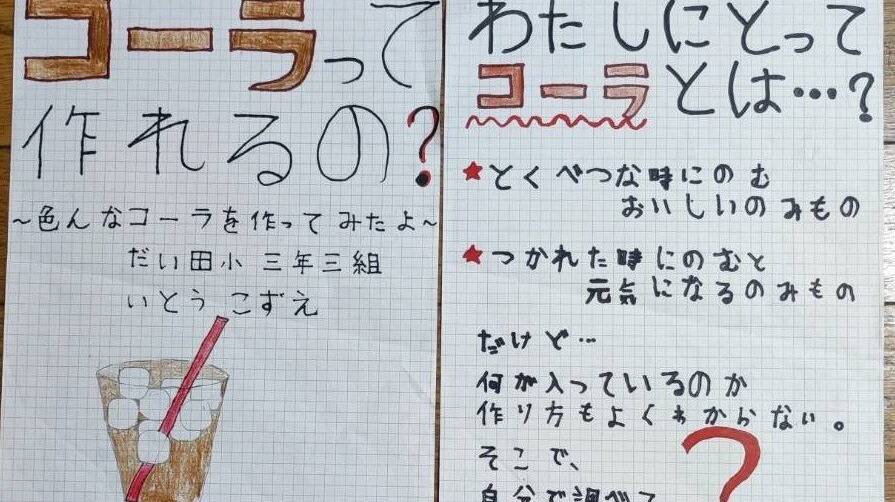 コーラって
作れるの?
~色んなコーラを作ってみたよ~
だい田小 三年三組
いとう こずえ
わたしにとって
コーラとは…?
★とくべつな時にのむ
おいしいのみもの
★つかれた時にのむと
元気になるのみもの
だけど…
何が入っているのか
作り方もよくわからない。
そこで、
自分で調べて
?